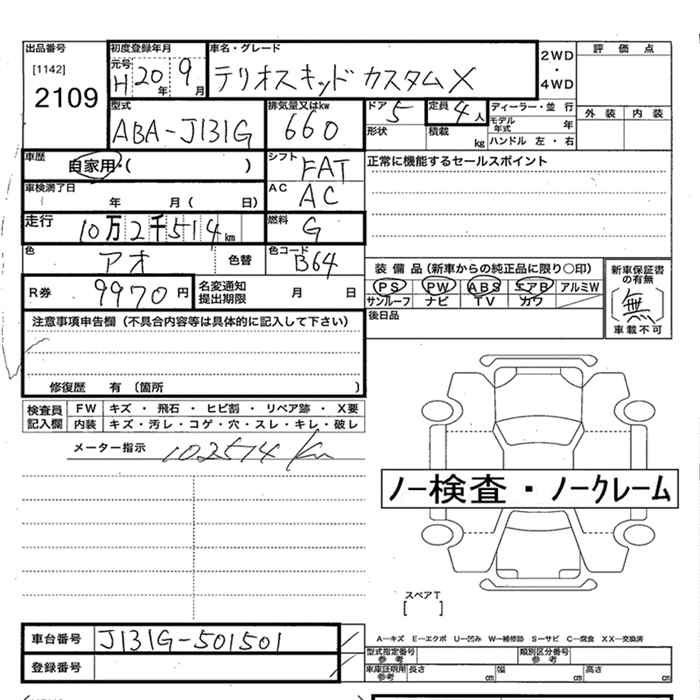 出品番号 初度登録年月 車名・グレード 2WD・4WD 評価点
[1142] 元号 H 20年 9月 テリオスキッド カスタムX
2109
型式 排気量又はkw ドア 5 定員 4人 ディーラー・並行 外装 内装
ABA-J131G 660 形状 積載 kg モデル年式 年
ハンドル 左・右
車歴 自家用・( ) シフト FAT 正常に機能するセールスポイント
車検満了日 年 月( 日) AC AC
走行 10万2千514km 燃料 G
色 アオ 色替 色コード B64
装備品(新車からの純正品に限り○印) 新車保証書の有無
R券 9970円 名変通知提出期限 月 日 PS PW ABS エアB アルミW [無]
サンルーフ ナビ TV カワ 車載不可
注意事項申告欄(不具合内容等は具体的に記入して下さい) 後日品
修復歴 有 〔箇所 〕
検査員記入欄 FW キズ・飛石・ヒビ割・リペア跡・X要
内装 キズ・汚レ・コゲ・穴・スレ・キレ・破レ
メーター指示 102514 Km
ノー検査・ノークレーム
スペアT
[ ]
車台番号 J131G-501501 A−キズ E−エクボ U−凹み W−補修跡 S−サビ C−腐食 XX−交換済
登録番号 型式指定番号 参考 類別区分番号 参考
車庫証明用参考 長さ cm 幅 cm 高さ cm